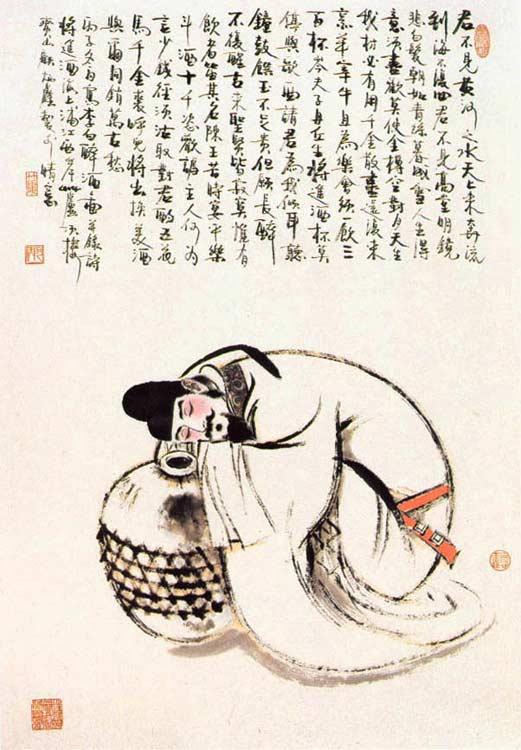 君不見黃河之水天上来奔流
到海不復回君不見高堂明鏡
悲白髮朝如青絲暮成雪人生得
意須盡歡莫使金樽空對月天生
我材必有用千金散盡還復来
烹羊宰牛且為樂會須一飲三
百杯岑夫子丹丘生將進酒杯莫
停與歌一曲請君為我傾耳聽
鐘鼓饌玉不足貴但願長醉
不復醒古来聖賢皆寂寞惟有
飲者留其名陳王昔時宴平樂
斗酒十千恣歡謔主人何為
言少錢徑須沽取對君酌五花
馬千金裘呼兒將出換美酒
與爾同銷萬古愁
丙子冬月寫李白醉酒圖并錄詩
將進酒於上浦江西岸